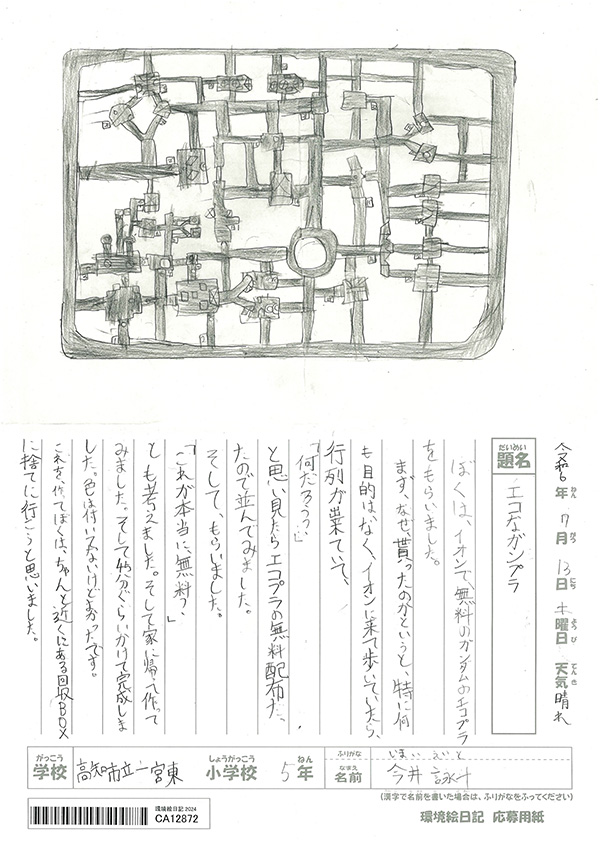 令和6年7月13日木曜日 天気晴れ
ねん がつ にち ようび てんき
だいめい
題名
エコなガンプラ
ぼくは、イオンで、無料のガンダムのエコプラ
をもらいました。
まず、なぜ、貰ったのかというと、特に何
も目的はなく、イオンに来て歩いていたら、
行列が出来ていて、
「何だろう?」
と思い見たらエコプラの無料配布だっ
たので並んでみました。
そして、もらいました。
「これが本当に無料?」
とも考えました。そして家に帰って作って
みました。そして45分ぐらいかけて完成しま
した。色は付いてないけどよかったです。
これを作ってぼくは、ちゃんと近くにある回収BOX
に捨てに行こうと思いました。
がっこう
学校
高知市立一宮東
しょうがっこう
小学校
5
ねん
年
ふりがな
いまい えいと
なまえ
名前
今井 詠斗
(漢字で名前を書いた場合は、ふりがなをふってください)
環境絵日記2024
CA12872
環境絵日記 応募用紙